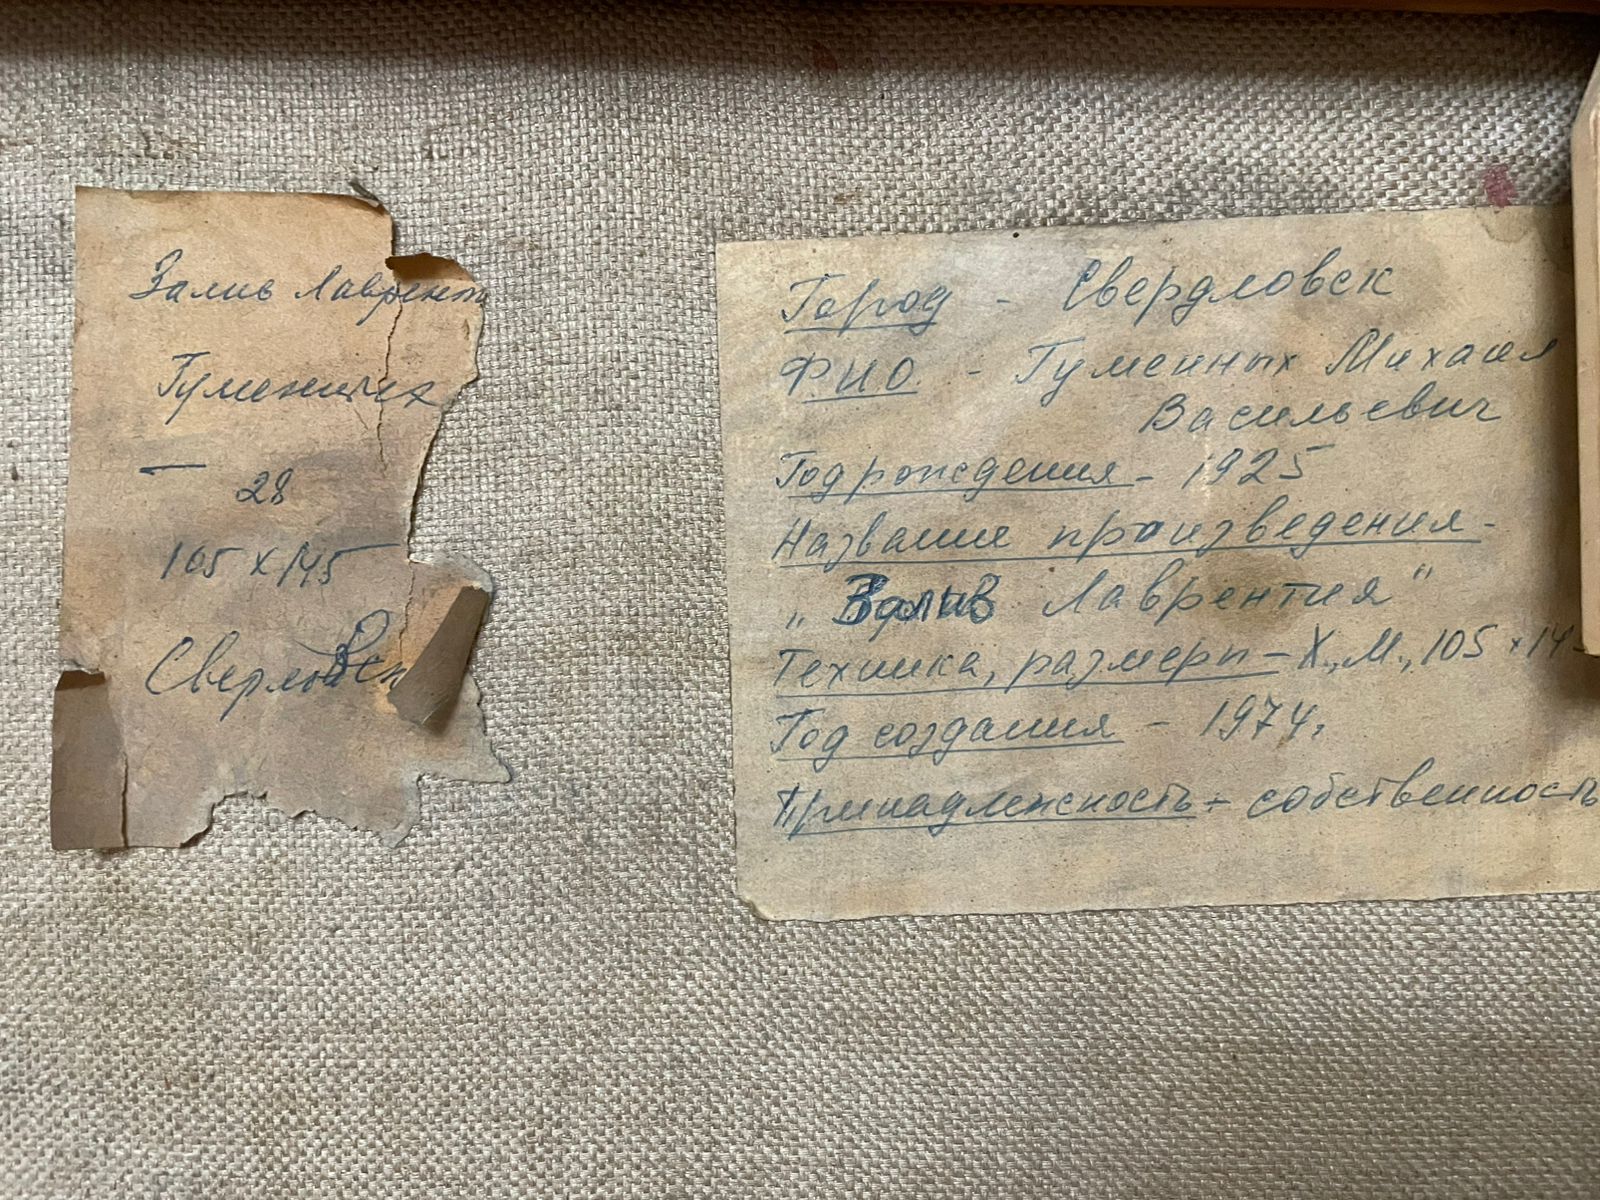 Залив Лаврент
Гуменных
28
105 х 145
Свердловск
Город - Свердловск
ФИО. - Гуменных Михаил
Васильевич
Год рождения - 1925
Название произведения -
„Залив Лаврентия"
Техника, размеры - Х., М., 105 х 14
Год создания - 1974.
Принадлежность - собственность